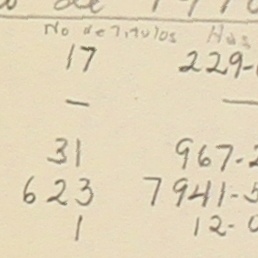 No de Titulos Has
17 229-
— —
31 967-2
623 7941-5
1 12-0